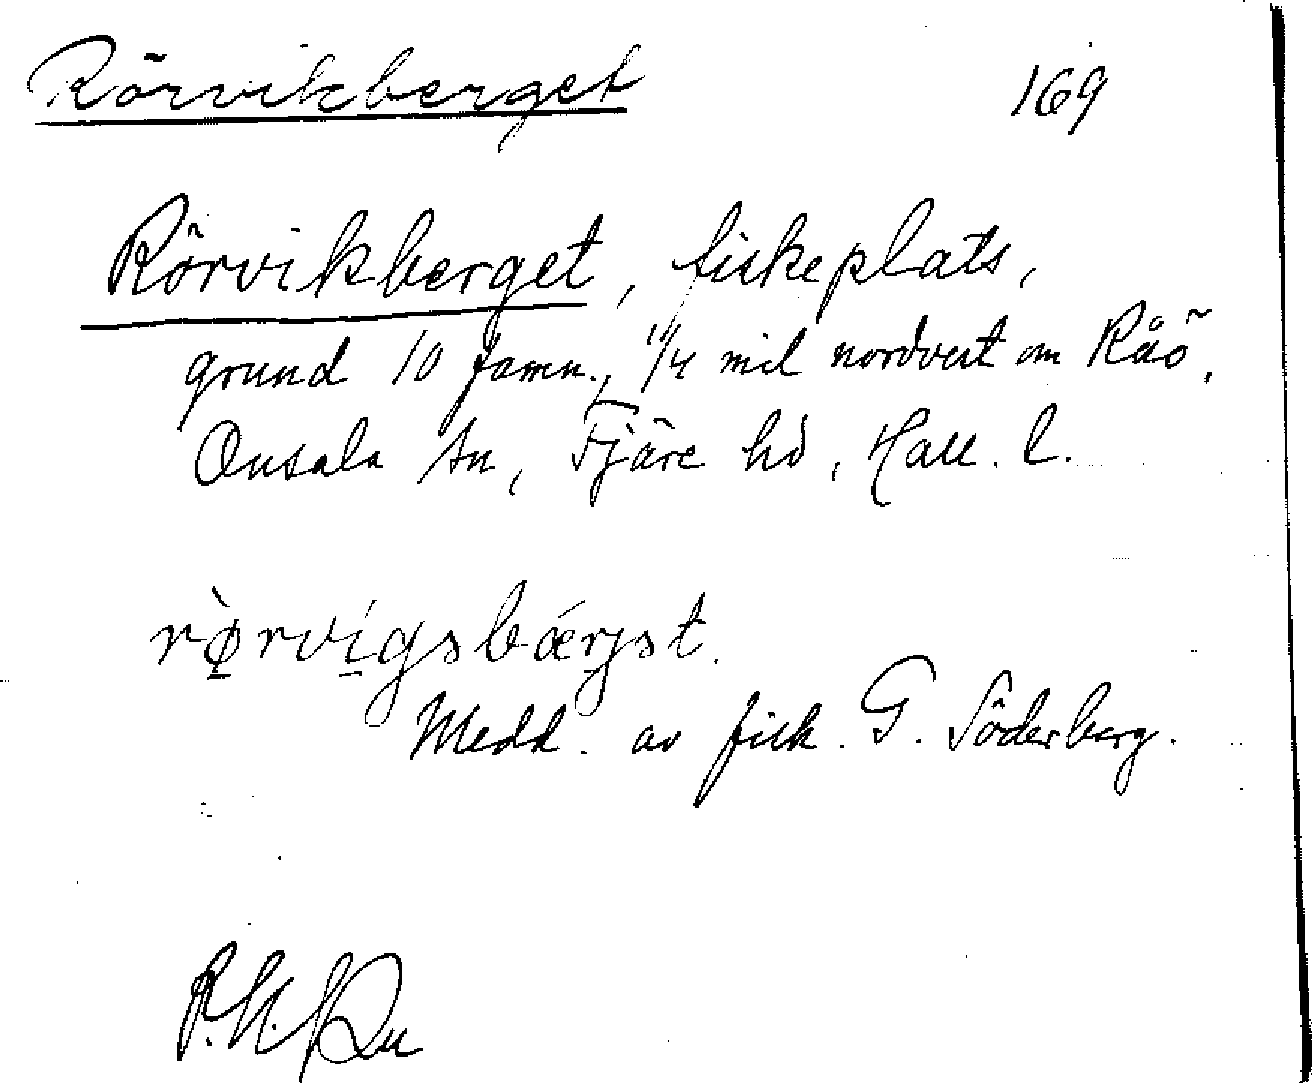 Rörvikberget 169
Rörvikberget, fiskeplats,
grund 10 famn., 1/4 mil nordvest om Råö,
Onsala sn, Fjäre hd, Hall. l.
rø̀rvígsbǽrjst.
Medd. av fisk. G. Söderberg.